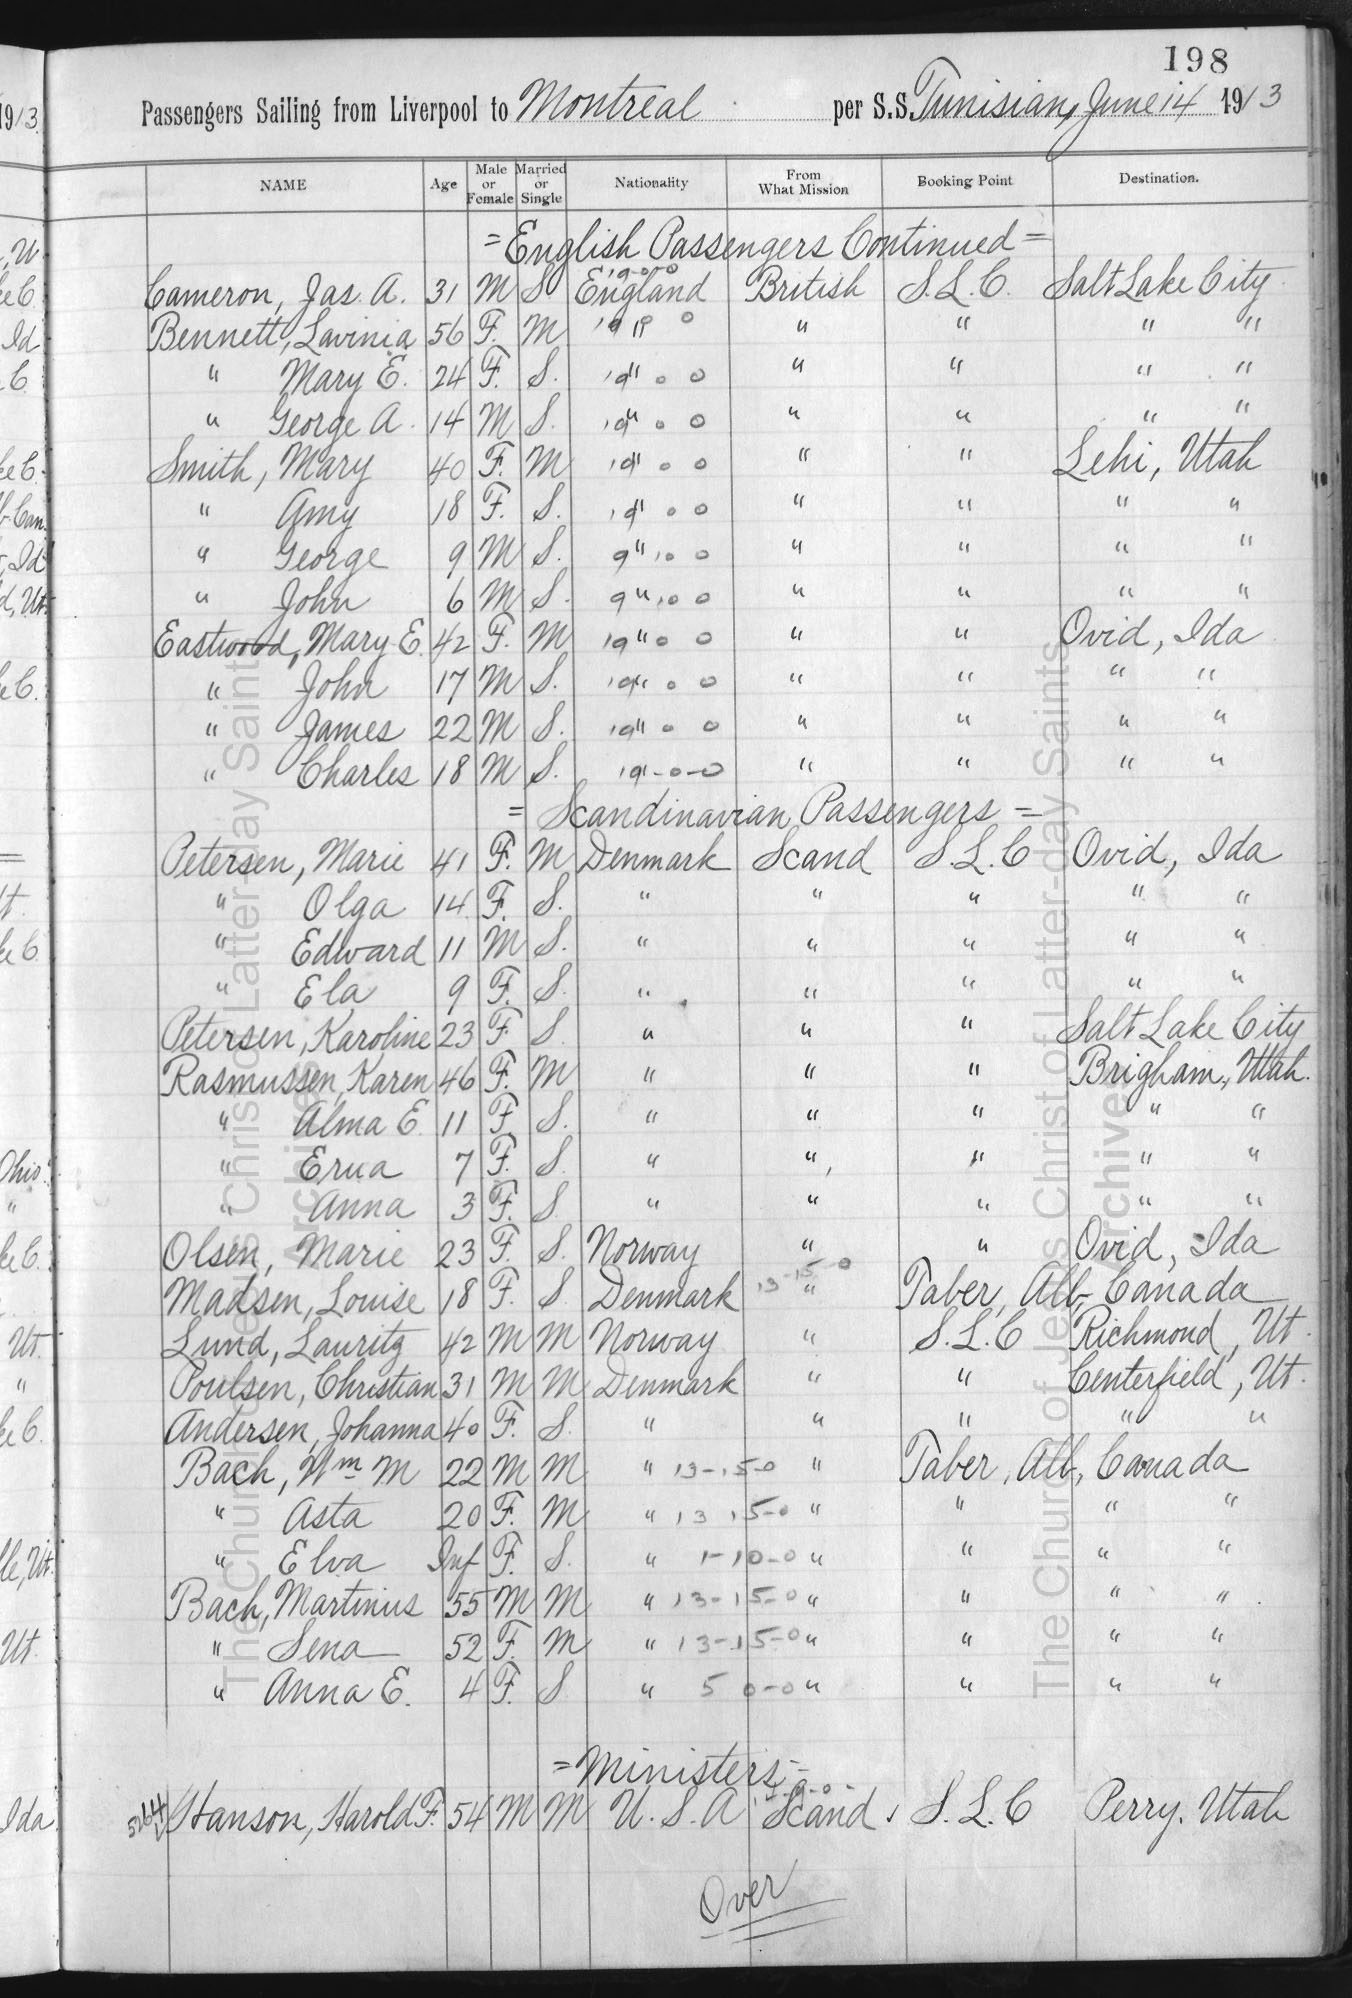 198
Passengers Sailing from Liverpool to Montreal per S.S. Tunisian, June 14 1913
NAME Age Male or Female Married or Single Nationality From What Mission Booking Point Destination.
= English Passengers Continued =
Cameron, Jas. A. 31 M S England 19-0-0 British S.L.C. Salt Lake City
Bennett, Lavinia 56 F. M " 19 0 0 " " " "
" Mary E. 24 F. S. " 19 0 0 " " " "
" George A. 14 M S. " 19 0 0 " " " "
Smith, Mary 40 F. M " 19 0 0 " " Lehi, Utah
" Amy 18 F. S. " 19 0 0 " " " "
" George 9 M S. " 9 10 0 " " " "
" John 6 M S. " 9 10 0 " " " "
Eastwood, Mary E. 42 F. M " 19 0 0 " " Ovid, Ida
" John 17 M S. " 19 0 0 " " " "
" James 22 M S. " 19 0 0 " " " "
" Charles 18 M S. " 19-0-0 " " " "
= Scandinavian Passengers =
Petersen, Marie 41 F. M Denmark Scand S.L.C Ovid, Ida
" Olga 14 F. S. " " " " "
" Edward 11 M S. " " " " "
" Ela 9 F. S. " " " " "
Petersen, Karoline 23 F. S. " " " Salt Lake City
Rasmussen, Karen 46 F. M " " " Brigham, Utah.
" Alma E. 11 F S. " " " " "
" Erna 7 F. S. " " " " "
" Anna 3 F. S. " " " " "
Olsen, Marie 23 F. S. Norway " " Ovid, Ida
Madsen, Louise 18 F. S. Denmark 13-15-0 " Taber, Alb, Canada
Lund, Lauritz 42 M M Norway " S.L.C Richmond, Ut.
Poulsen, Christian 31 M M Denmark " " Centerfield, Ut.
Andersen, Johanna 40 F. S. " " " " "
Bach, Wm M 22 M M " 13-15-0 " Taber, Alb, Canada
" Asta 20 F. M " 13 15-0 " " " "
" Elva Inf F. S. " 1-10-0 " " " "
Bach, Martinus 55 M M " 13-15-0 " " " "
" Sena 52 F. M " 13-15-0 " " " "
" Anna E. 4 F. S " 5 0-0 " " " "
= Ministers =
5264 Hanson, Harold F. 54 M M U.S.A Scand S.L.C Perry, Utah
Over
The Church of Jesus Christ of Latter-day Saints
Archives
The Church of Jesus Christ of Latter-day Saints
Archives